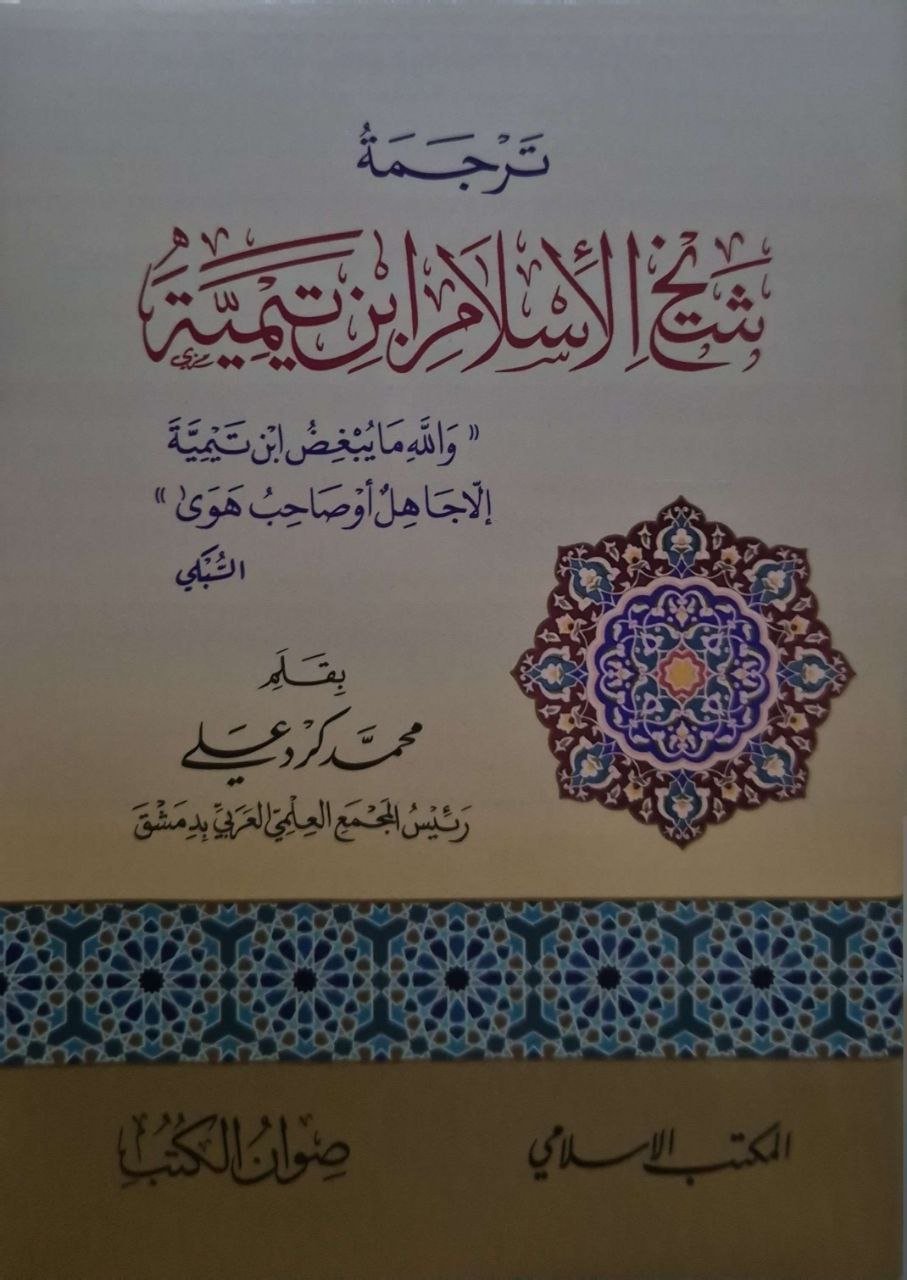 تَرْجَمَةُ
شَيْخِ الْإِسْلَامِ ابْنِ تَيْمِيَّةَ
« وَاللَّهِ مَا يُبْغِضُ ابْنَ تَيْمِيَّةَ
إلّا جَاهِلٌ أوْ صَاحِبُ هَوَىٰ »
السُّبْكي
بِقَلَمِ
محمَّد كُرْد عَلي
رَئيْسُ المَجْمَعِ العِلْميِّ العَرَبيِّ بِدِمَشْقَ
المكتب الاسلامي
صِوَانُ الكُتُبِ